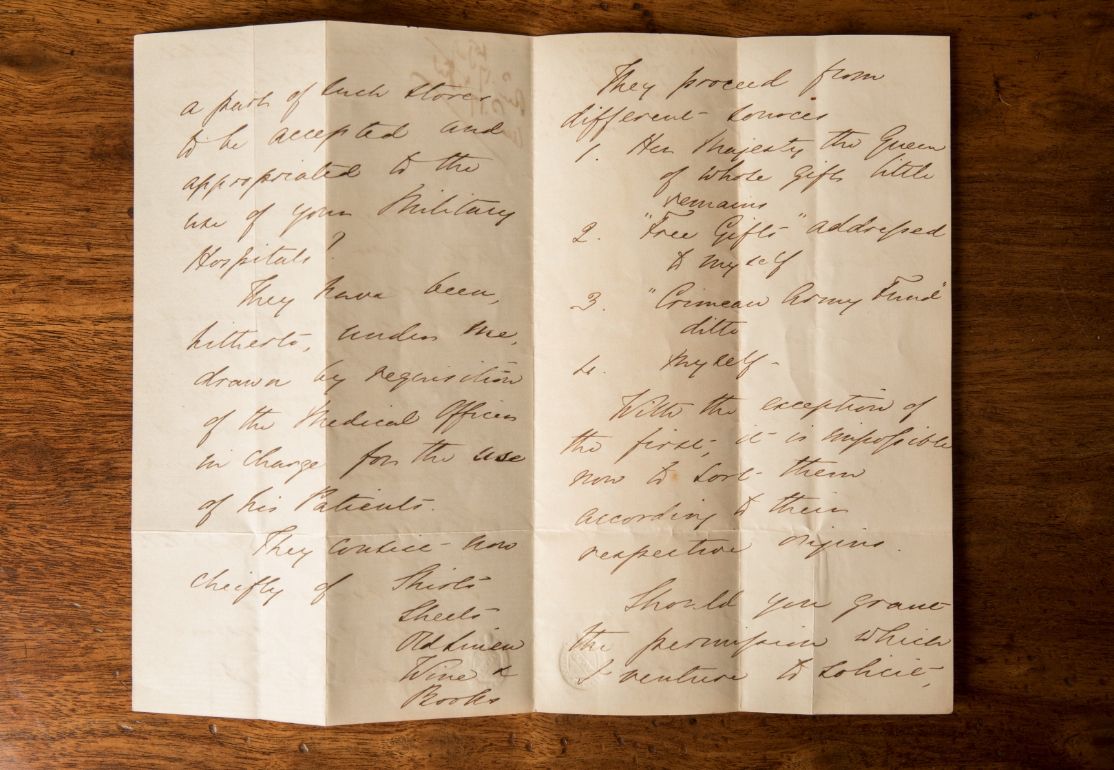 a part of such stores
to be accepted and
appropriated to the
use of your Military
Hospitals?
They have been,
hitherto, under me,
drawn by requisition
of the Medical Officer
in charge for the use
of his Patients.
They consist now
cheifly of Shirts
Sheets
Old Linen
Wine &
Books
They proceed from
different sources
1. Her Majesty the Queen
of whose gifts little
remains
2. "Free Gifts" addressed
to myself
3. "Crimean Army Fund"
ditto
4. Myself -
With the exception of
the first, it is impossible
now to sort them
according to their
respective origins.
Should you grant
the permission which
I venture to solicit,